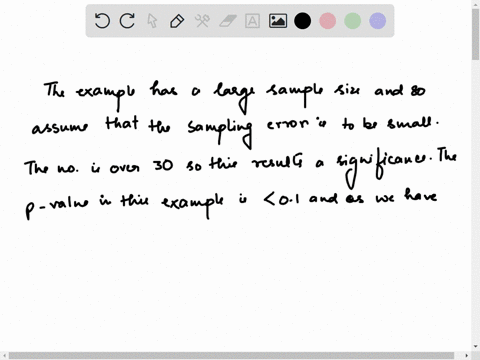 The example has a large sample size and so
assume that the sampling error is to be small.
The no. is over 30 so this results a significance. The
p-value in this example is < 0.1 and as we have